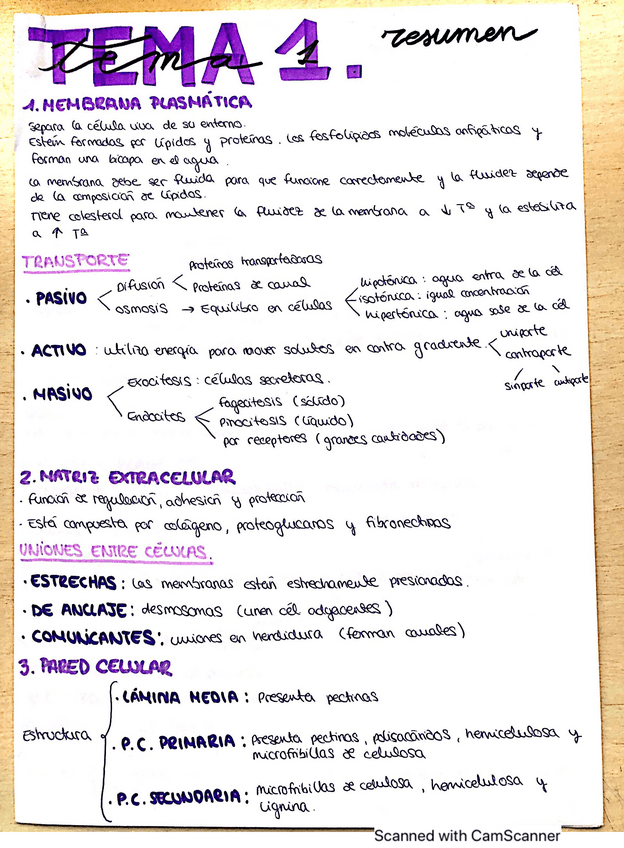 TEMA 1.
tema 1
resumen
1. MEMBRANA PLASMÁTICA
Separa la célula viva de su entorno.
Están formadas por lípidos y proteínas. Los fosfolípidos moléculas anfipáticas y
forman una bicapa en el agua.
La membrana debe ser fluida para que funcione correctamente y la fluidez depende
de la composición de lípidos.
Tiene colesterol para mantener la fluidez de la membrana a ↓ Tª y la estabiliza
a ↑ Tª
TRANSPORTE
· PASIVO
Difusión
Proteínas transportadoras
Proteínas de canal
osmosis → Equilibrio en células
hipotónica: agua entra de la cél
isotónica: igual concentración
hipertónica: agua sale de la cél
· ACTIVO: utiliza energía para mover solutos en contra gradiente.
uniporte
contraporte
simporte antiporte
· MASIVO
Exocitosis: células secretoras.
Endocitos
Fagocitosis (sólido)
Pinocitosis (líquido)
por receptores (grandes cantidades)
2. MATRIZ EXTRACELULAR
· Función de regulación, adhesión y protección
· Está compuesta por colágeno, proteoglucanos y fibronectinas
UNIONES ENTRE CÉLULAS.
· ESTRECHAS: Las membranas están estrechamente presionadas.
· DE ANCLAJE: desmosomas (unen cél adyacentes)
· COMUNICANTES: uniones en hendidura (forman canales)
3. PARED CELULAR
Estructura
· LÁMINA MEDIA: Presenta pectinas
· P.C. PRIMARIA: Presenta pectinas, polisacáridos, hemicelulosa y
microfibillas de celulosa
· P.C. SECUNDARIA: microfibillas de celulosa, hemicelulosa y
Lignina.
Scanned with CamScanner